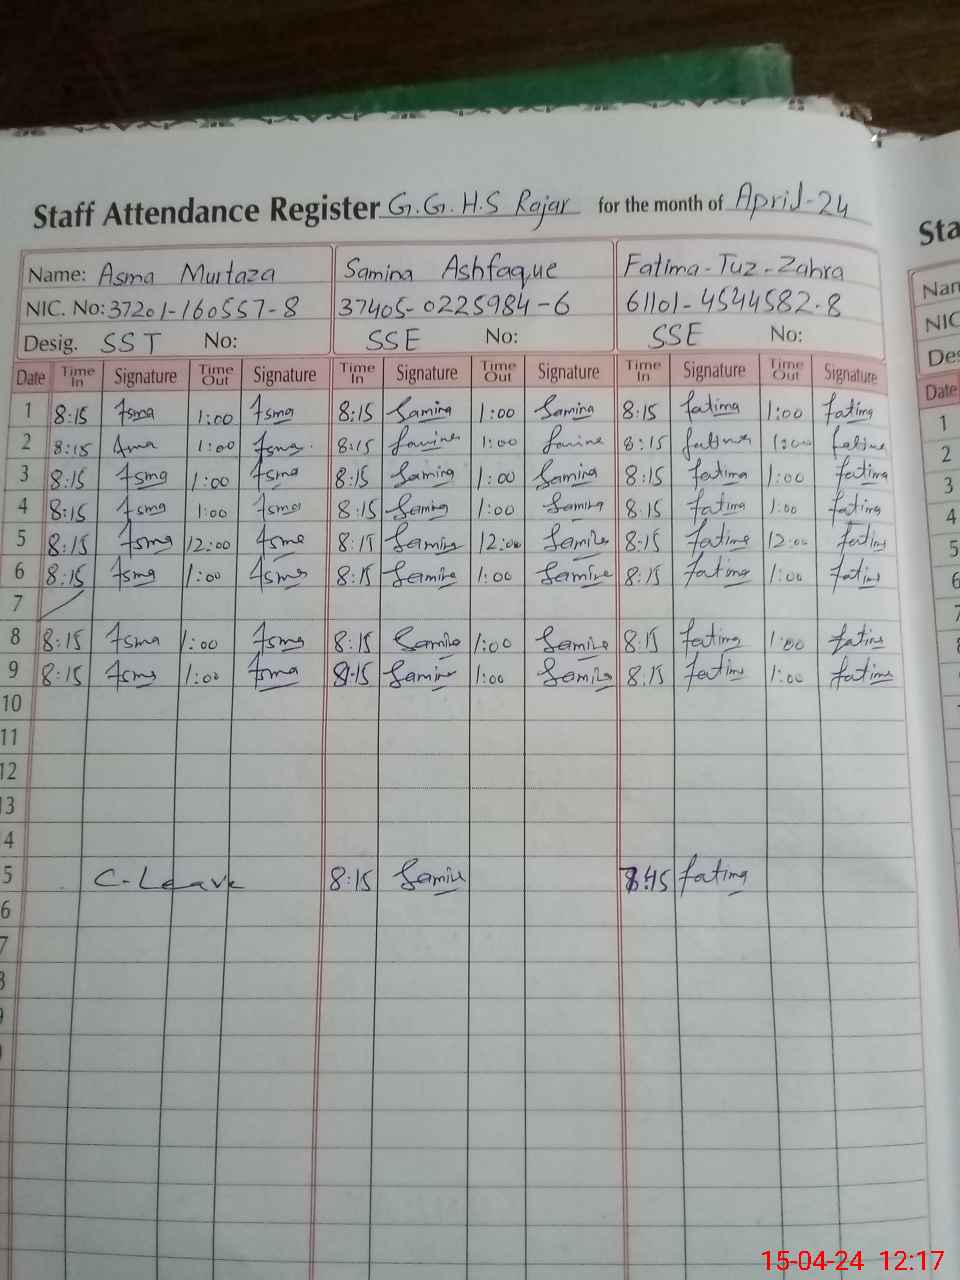 Staff Attendance Register G.G.H.S Rajar for the month of April-24
Name: Asma Murtaza Samina Ashfaque Fatima-Tuz-Zahra
NIC. No: 37201-160557-8 37405-0225984-6 61101-4544582-8
Desig. SST No: SSE No: SSE No:
Date Time In Signature Time Out Signature Time In Signature Time Out Signature Time In Signature Time Out Signature
1 8:15 Asma 1:00 Asma 8:15 Samina 1:00 Samina 8:15 fatima 1:00 fatima
2 8:15 Asma 1:00 Asma 8:15 Samina 1:00 Samina 8:15 fatima 1:00 fatima
3 8:15 Asma 1:00 Asma 8:15 Samina 1:00 Samina 8:15 fatima 1:00 fatima
4 8:15 Asma 1:00 Asma 8:15 Samina 1:00 Samina 8:15 fatima 1:00 fatima
5 8:15 Asma 12:00 Asma 8:15 Samina 12:00 Samina 8:15 fatima 12:00 fatima
6 8:15 Asma 1:00 Asma 8:15 Samina 1:00 Samina 8:15 fatima 1:00 fatima
7
8 8:15 Asma 1:00 Asma 8:15 Samina 1:00 Samina 8:15 fatima 1:00 fatima
9 8:15 Asma 1:00 Asma 8:15 Samina 1:00 Samina 8:15 fatima 1:00 fatima
10
11
12
13
4
5 C-Leave 8:15 Samina fatima
6
7
8
Sta
Nam
NIC
Des
Date
1
2
3
4
5
6
7
8
15-04-24 12:17